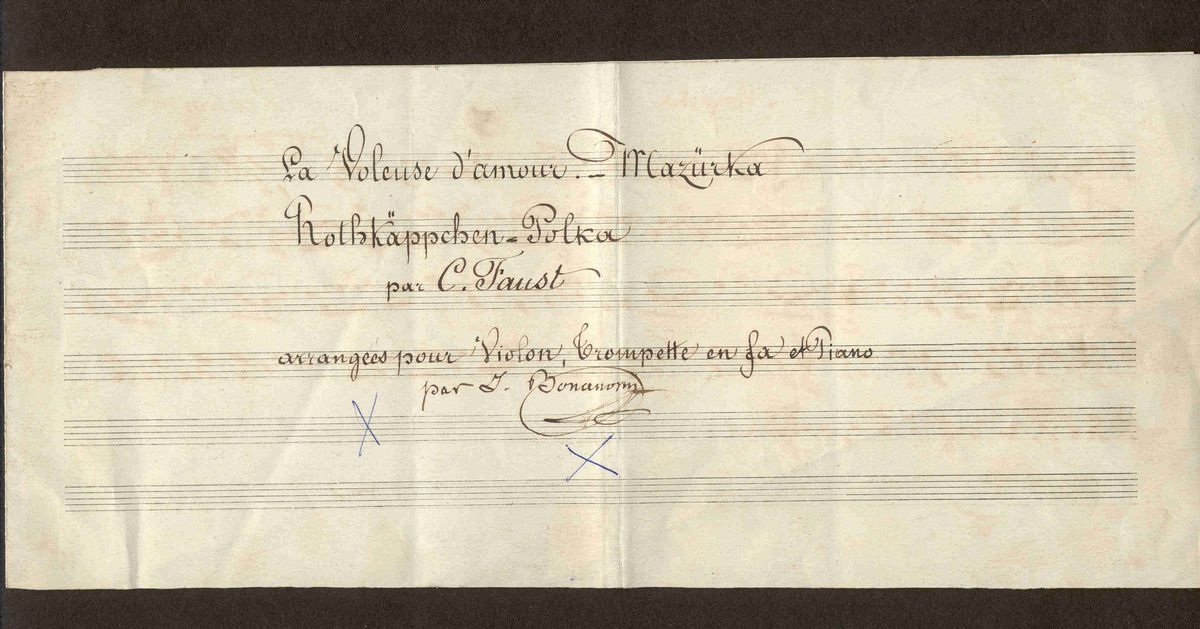 La Voleuse d'amour. - Mazürka
Rothkäppchen - Polka
par C. Faust
arrangées pour Violon, Trompette en fa et Piano
par J. Bonanomi